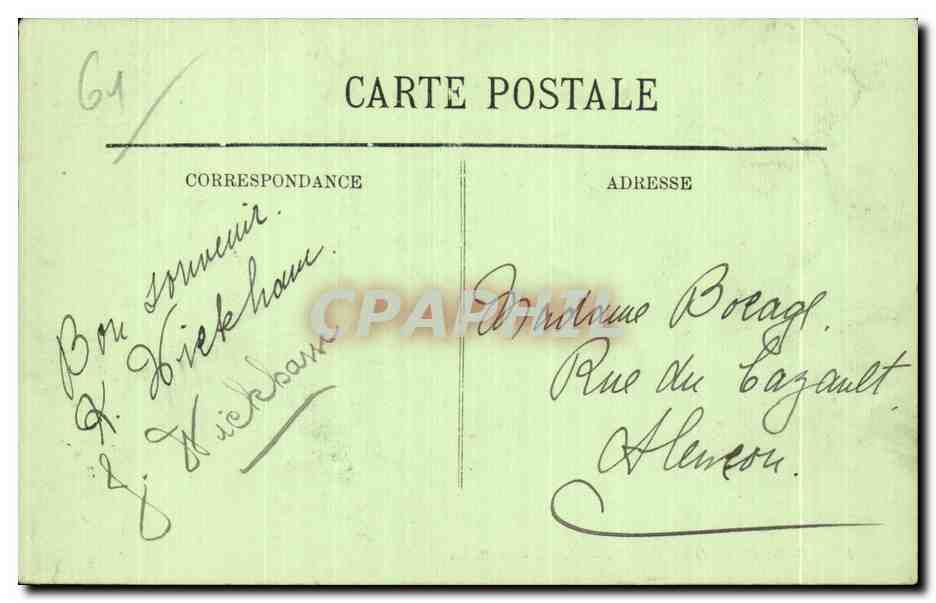 61
CARTE POSTALE
CORRESPONDANCE
ADRESSE
Bon souvenir.
K. Wickham.
J. Wickham
Madame Bocage.
Rue du Cazault
Alencon.
CPAPHIL